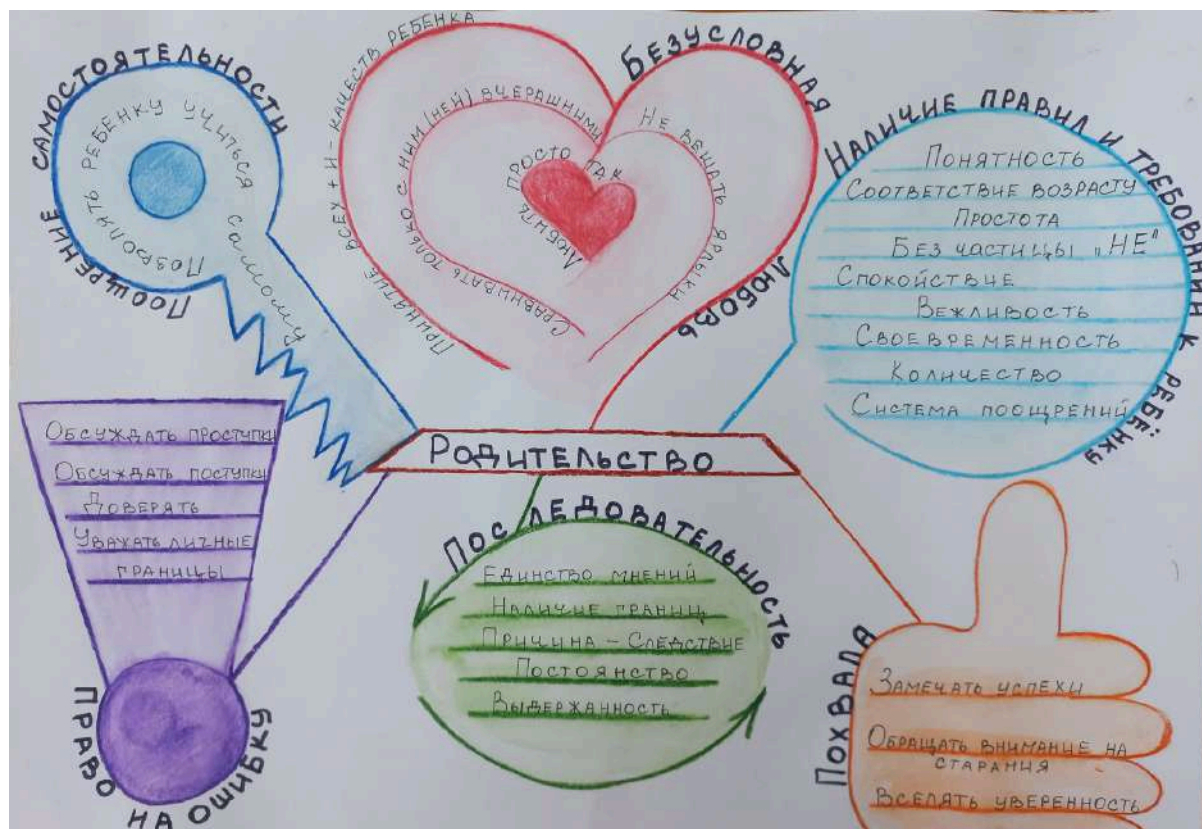 Поощрение самостоятельности
Позволять ребенку учиться самому
Безусловная любовь
Принятие всех + и - качеств ребенка
Сравнивать только с ним (ней) вчерашними
Не вешать ярлыки
Любить просто так
Наличие правил и требований к ребёнку
Понятность
Соответствие возрасту
Простота
Без частицы „НЕ"
Спокойствие
Вежливость
Своевременность
Количество
Система поощрений
Родительство
Обсуждать проступки
Обсуждать поступки
Доверять
Уважать личные
границы
Право на ошибку
Последовательность
Единство мнений
Наличие границ
Причина – Следствие
Постоянство
Выдержанность
Похвала
Замечать успехи
Обращать внимание на
старания
Вселять уверенность